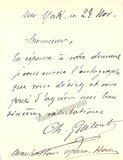 New York. ce 29 Nov.
Monsieur,
En réponse à votre demande
je vous envoie l'autographe
que vous désirez et vous
prie d'agréer mes bien
sincères salutations
Ch. Gilibert
Manhattan Opera House